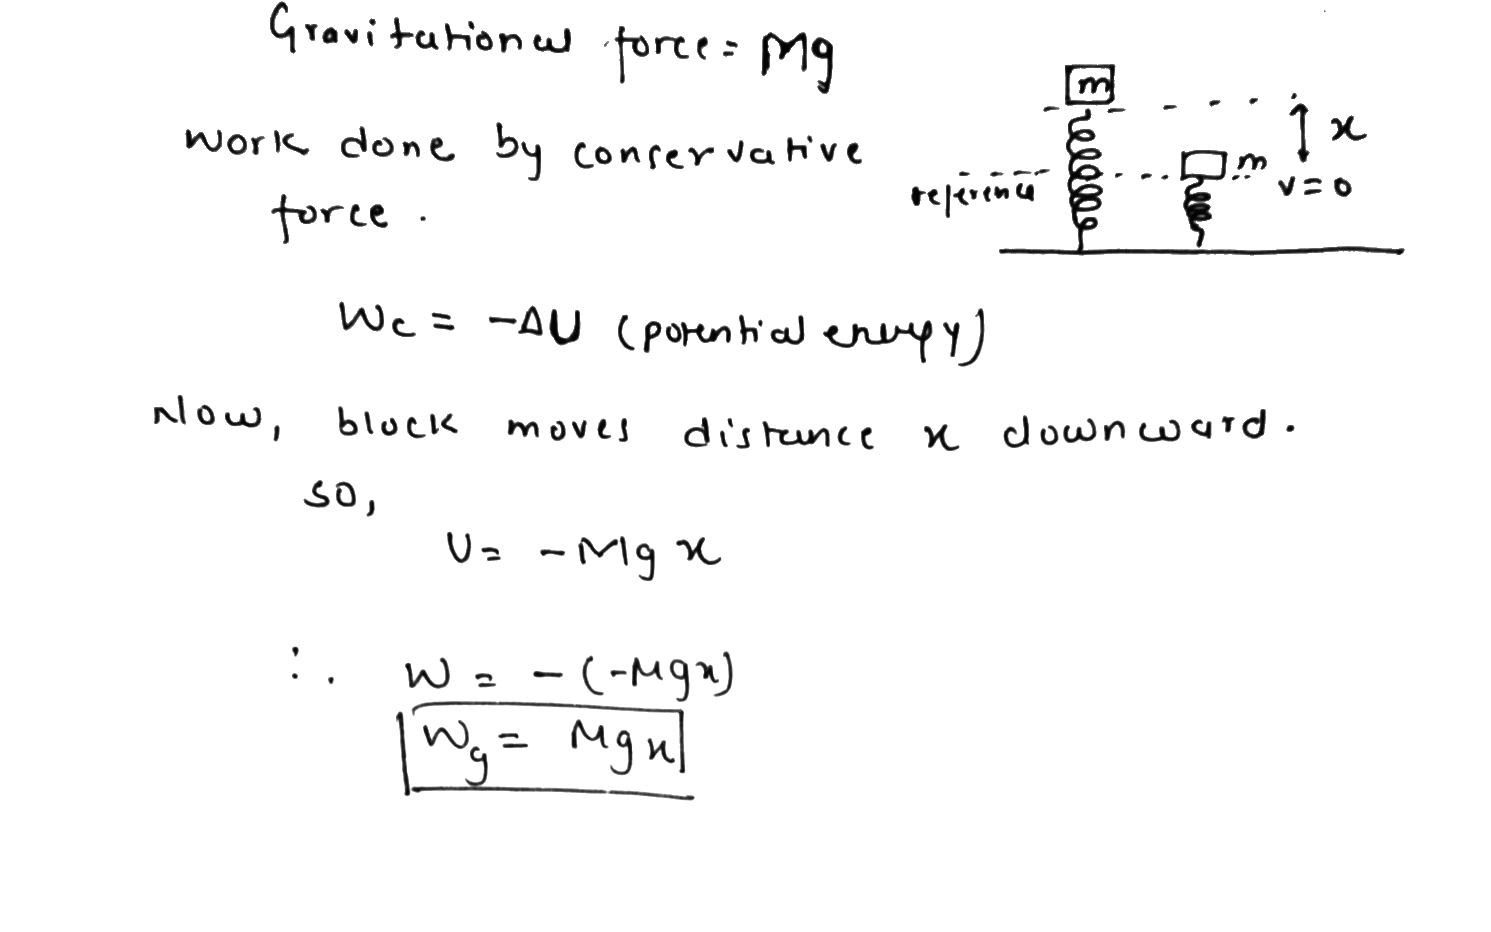 Gravitational force = Mg
m
x
work done by conservative
reference
m
v=0
force.
Wc = -ΔU (potential energy)
Now, block moves distance x downward.
so,
U = -Mgx
∴ W = -(-Mgx)
Wg = Mgx